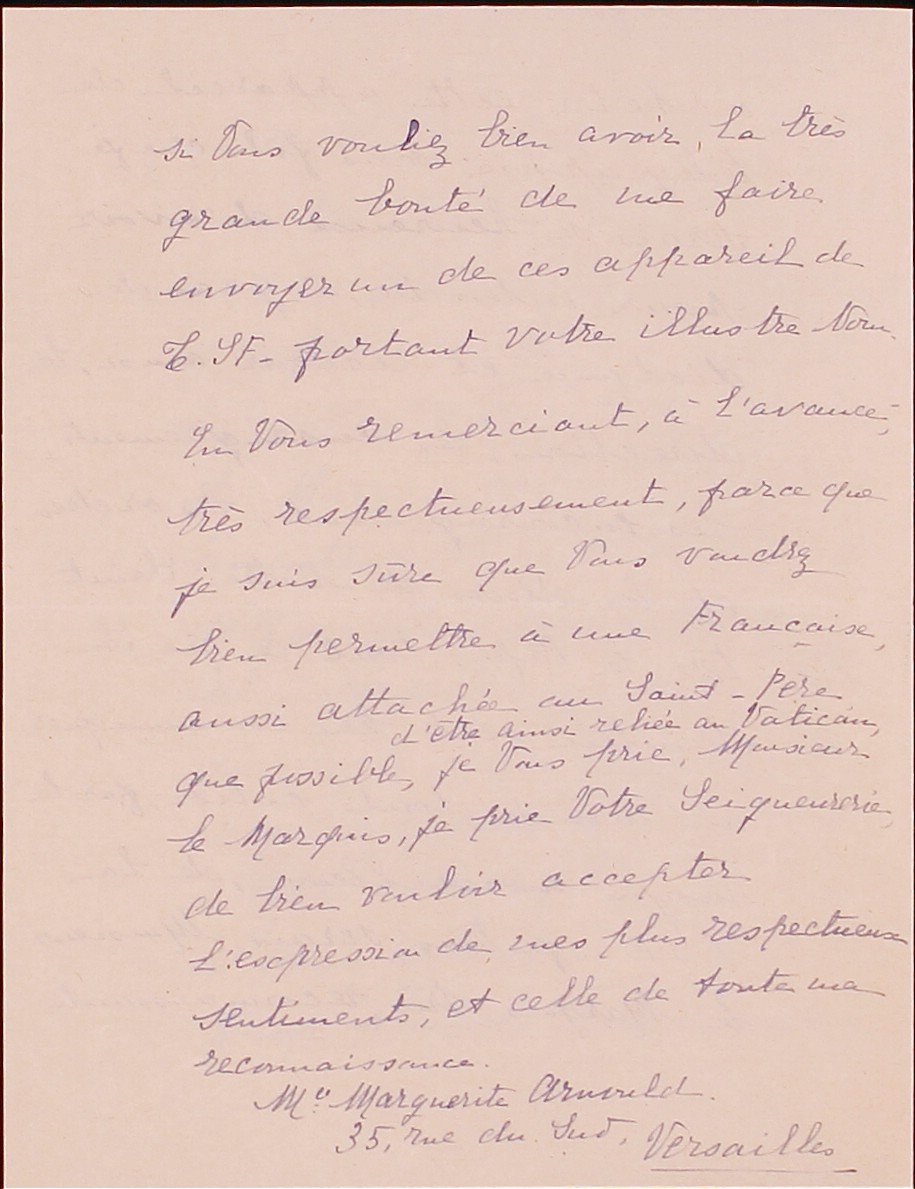 si Vous vouliez bien avoir, la très
grande bonté de me faire
envoyer un de ces appareil de
T.SF- portant votre illustre Nom.
En Vous remerciant, à l'avance,
très respectueusement, parce que
je suis sûre que Vous voudrez
bien permettre à une Française,
aussi attachée au Saint-Père
d'être ainsi reliée au Vatican,
que possible, je Vous prie, Monsieur
le Marquis, je prie Votre Seigneurerie,
de bien vouloir accepter
l'expression de mes plus respectueux
sentiments, et celle de toute ma
reconnaissance.
Marguerite Arnould.
35, rue du Sud, Versailles